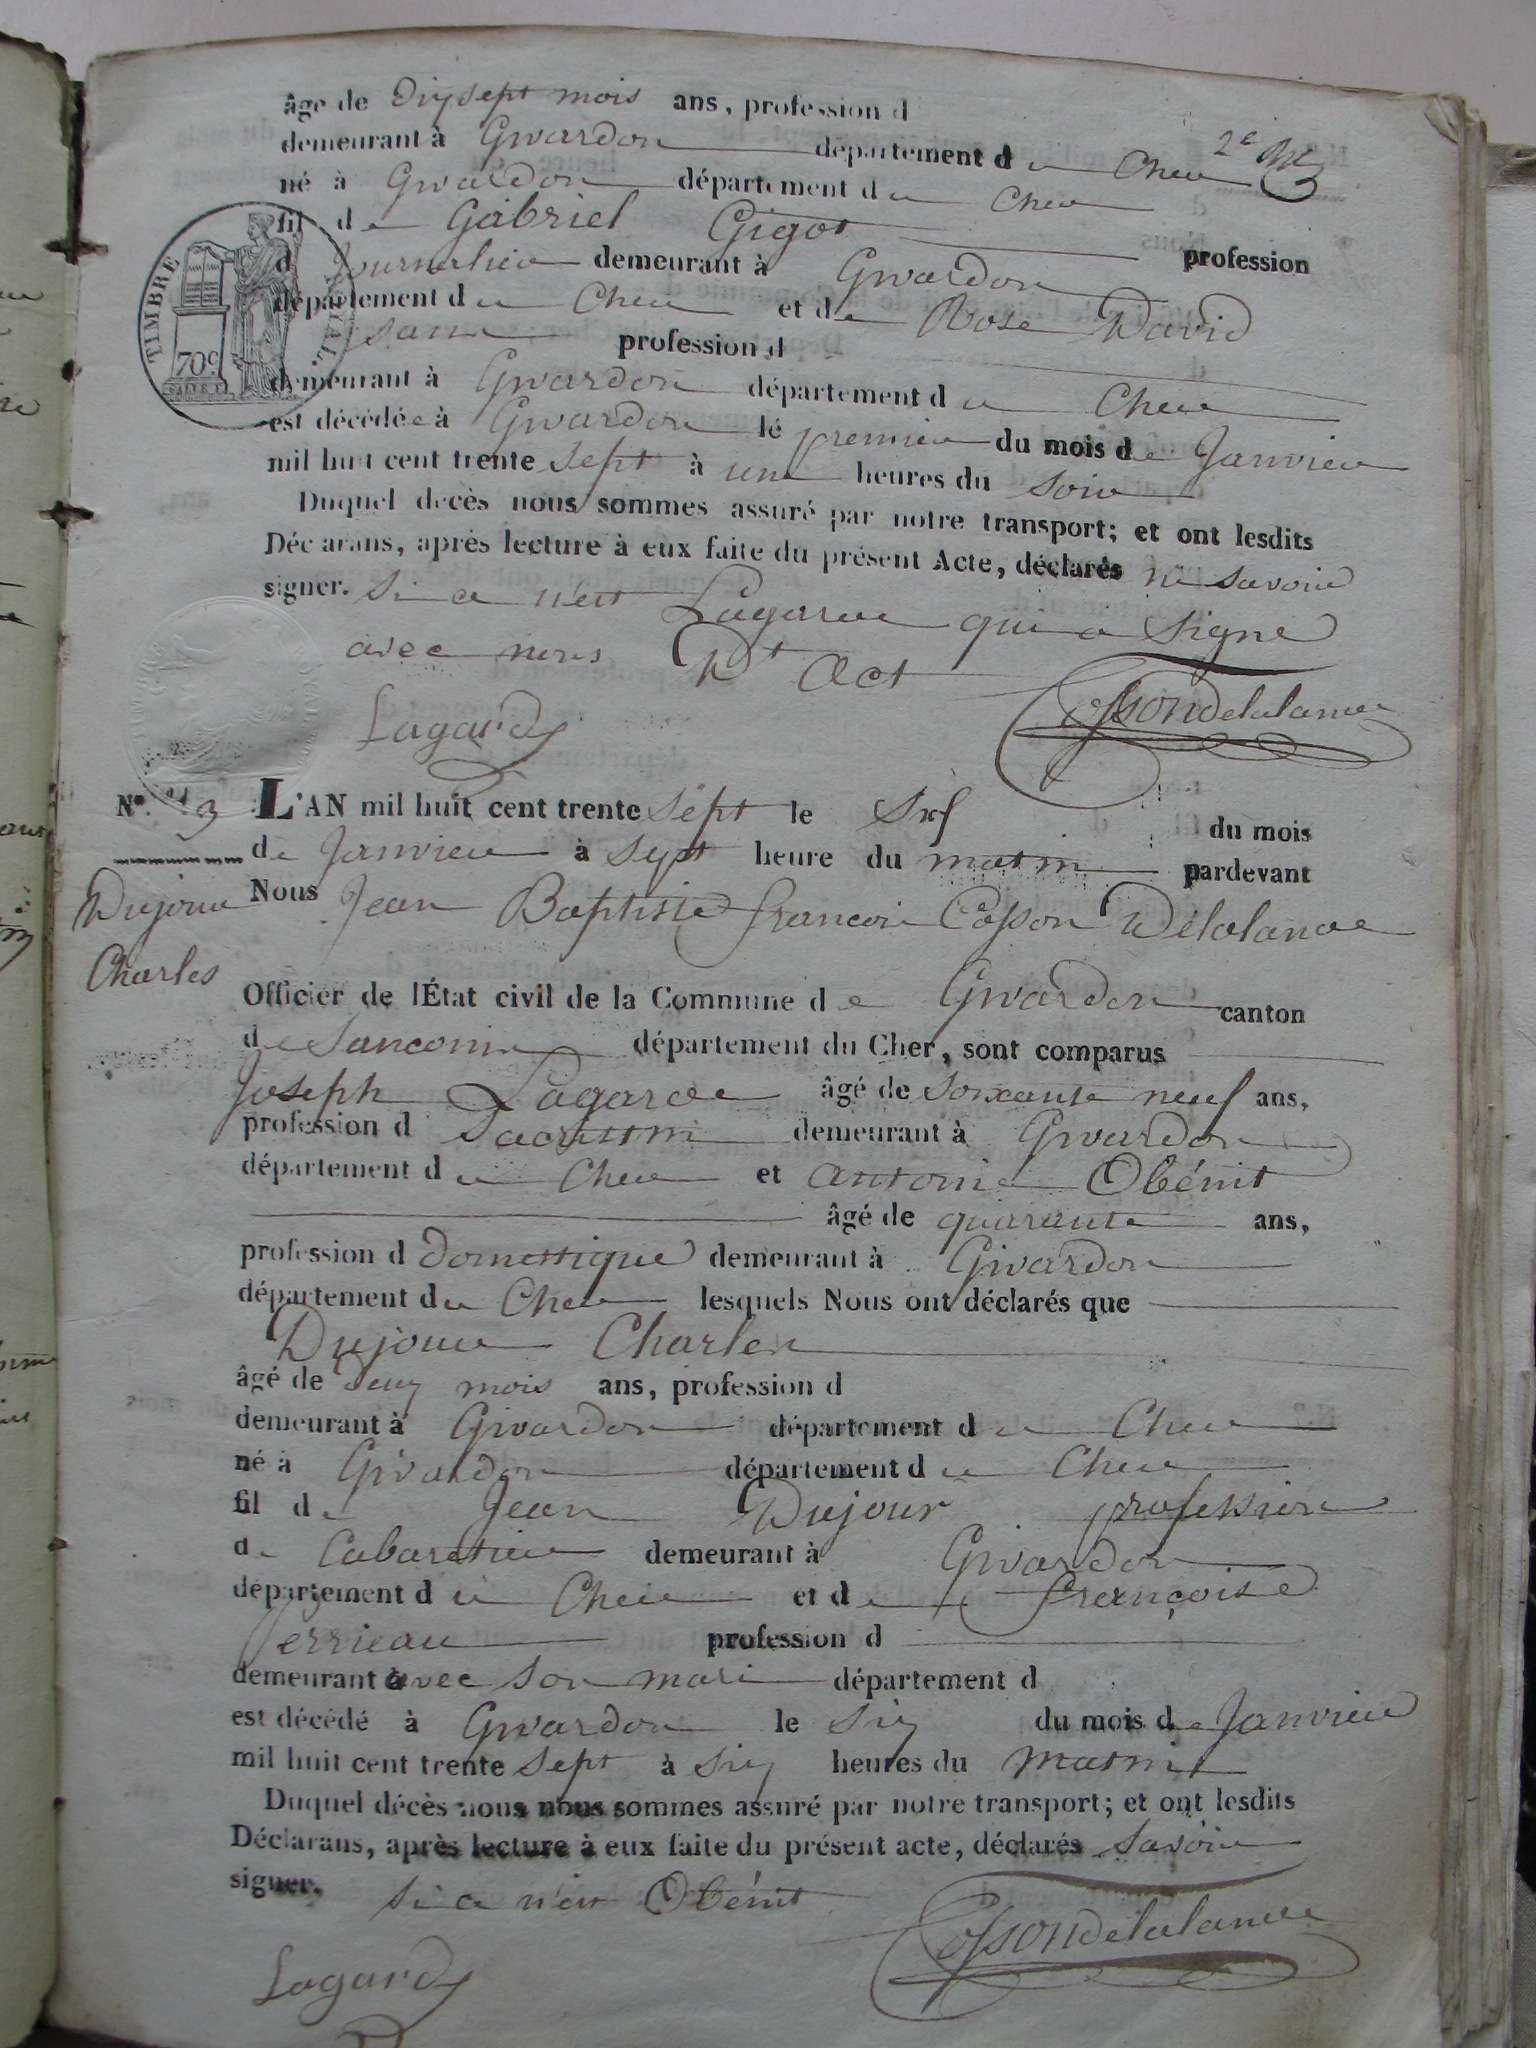 âge de Dix sept mois ans, profession d
demeurant à Givardon département du Cher 2e
né à Givardon département du Cher
fil de Gabriel Gigot profession
d Journalier demeurant à Givardon
département du Cher et de Rose David
profession d
demeurant à Givardon département du Cher
est décédée à Givardon le premier du mois de Janvier
mil huit cent trente Sept à une heures du Soir
Duquel decès nous sommes assuré par notre transport; et ont lesdits
Déclarans, après lecture à eux faite du présent Acte, déclarés ne savoir
signer. Si ce n'est Lagarde qui a Signé
avec nous Dt Act
Cossondelalande
Lagarde
TIMBRE
70c
No. 3 L'AN mil huit cent trente Sept le Six du mois
de Janvier à Sept heure du matin pardevant
Nous Jean Baptiste francois Cosson Delalande
Dujour
Charles
Officier de lÉtat civil de la Commune de Givardon canton
de Sancoins département du Cher, sont comparus
Joseph Lagarde âgé de Soixante neuf ans,
profession d Sacristin demeurant à Givardon
département du Cher et antoine Obénit
âgé de quarante ans,
profession d domestique demeurant à Givardon
département du Cher lesquels Nous ont déclarés que
Dujour Charles
âgé de deux mois ans, profession d
demeurant à Givardon département du Cher
né à Givardon département du Cher
fil de Jean Dujour profession
de Cabaretier demeurant à Givardon
département du Cher et de françoise
Perrieau profession d
demeurant avec son mari département d
est décédé à Givardon le Six du mois de Janvier
mil huit cent trente Sept à Six heures du Matin
Duquel décès nous nous sommes assuré par notre transport; et ont lesdits
Déclarans, après lecture à eux faite du présent acte, déclarés Savoir
signer. Si ce n'est Obénit
Cossondelalande
Lagarde